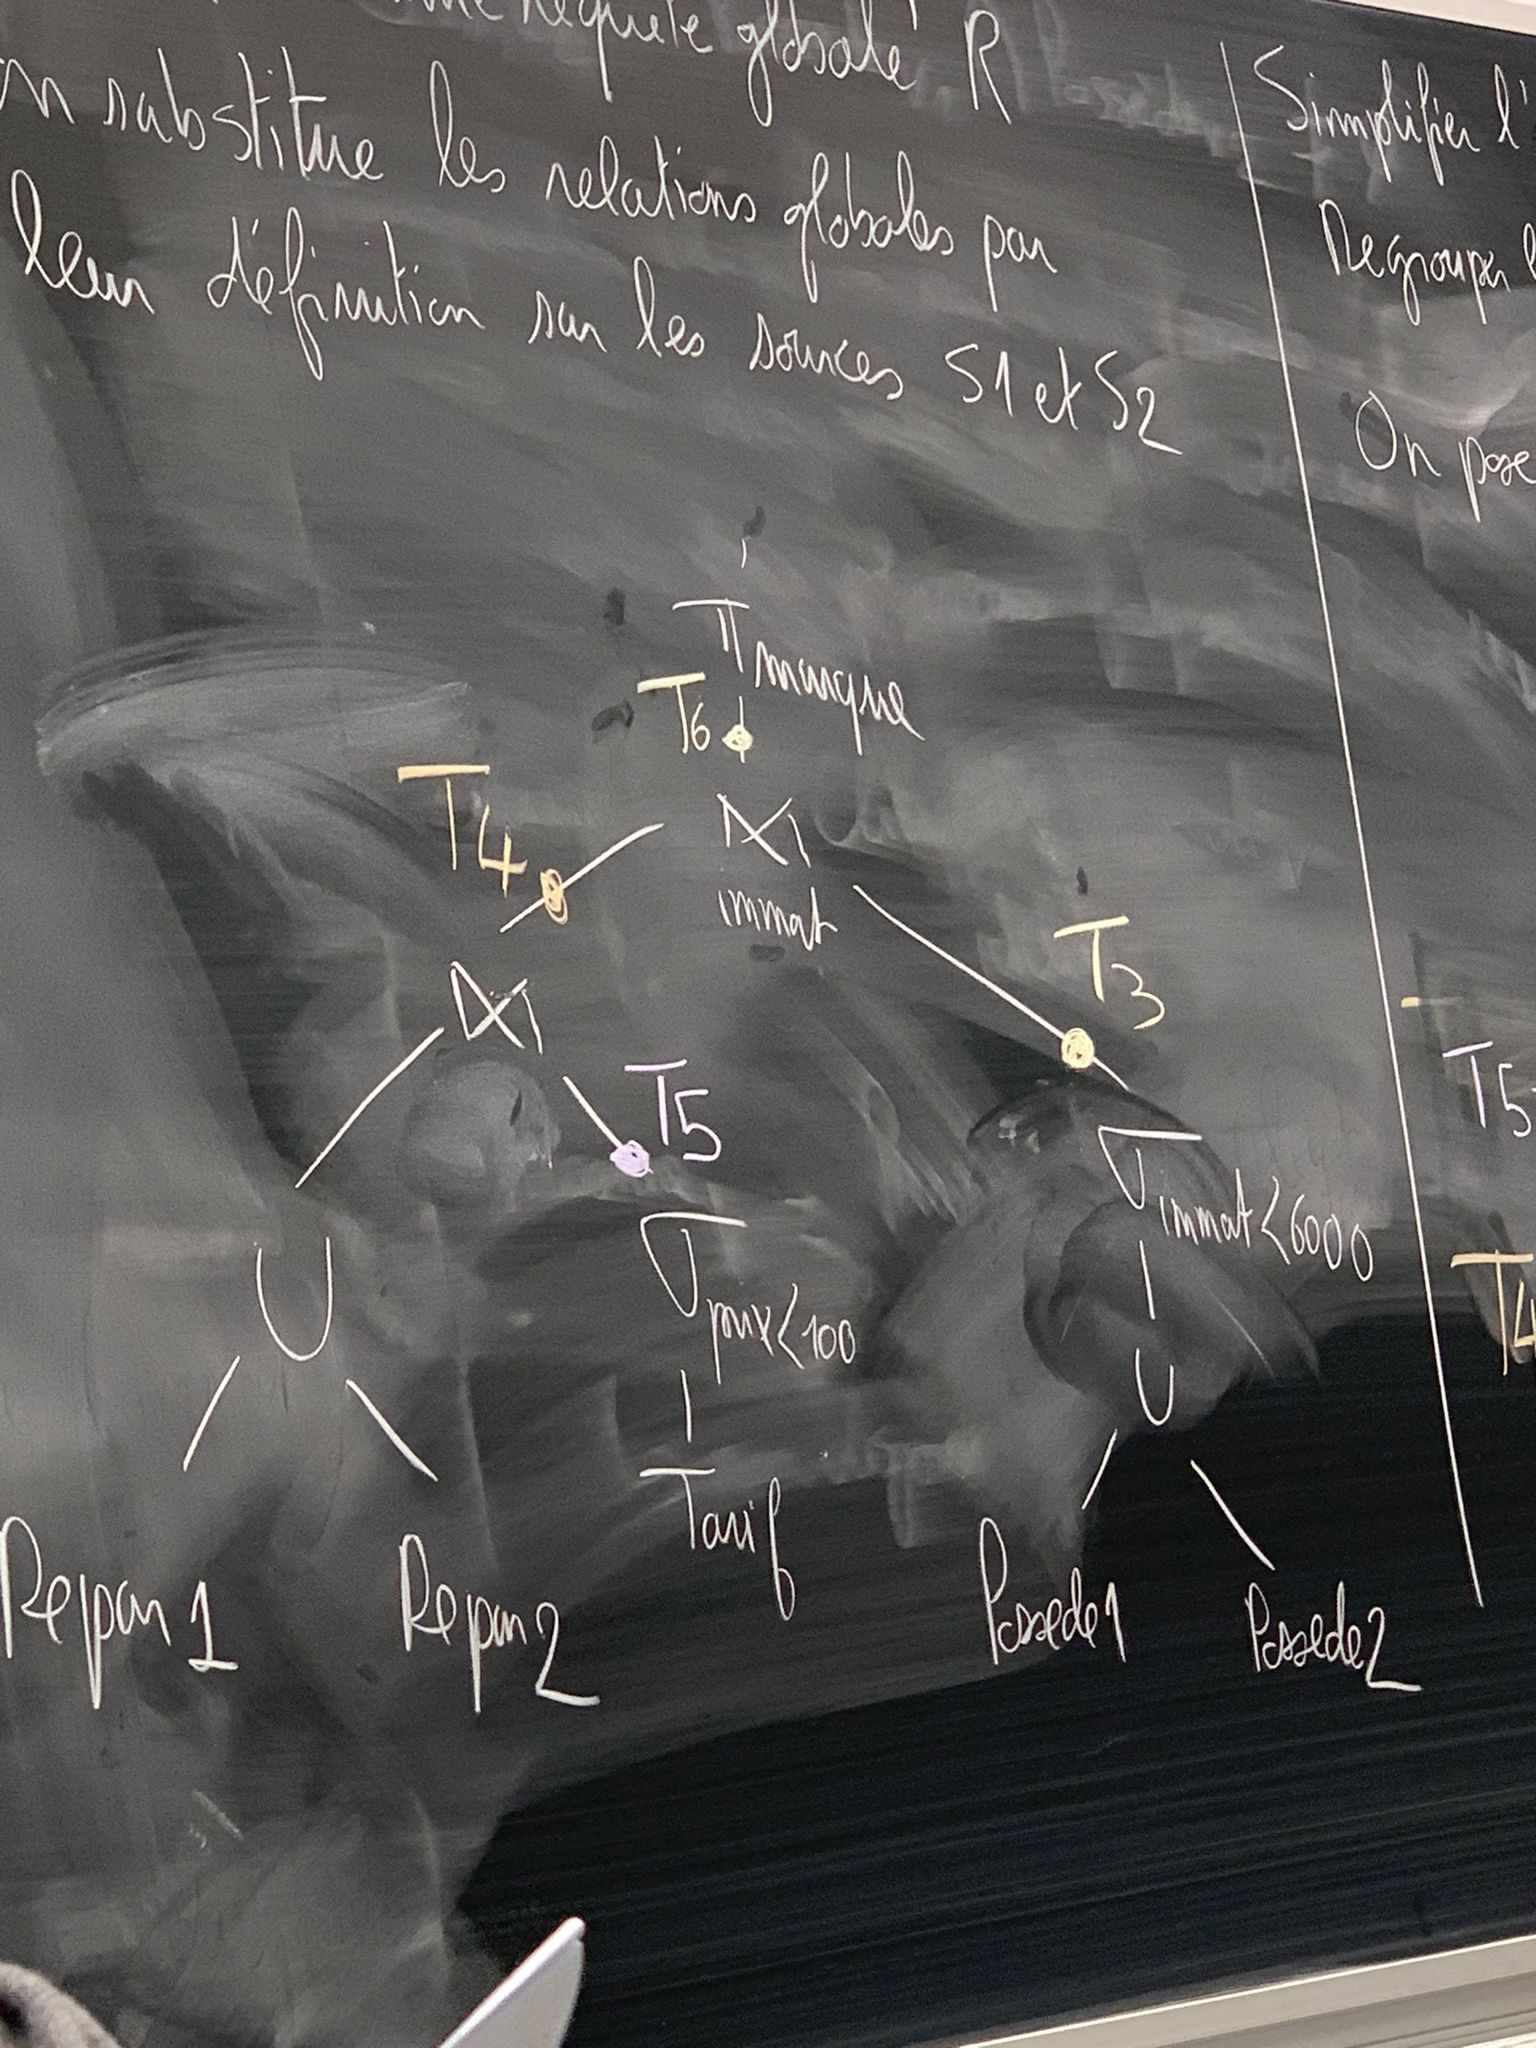 Requête globale R
on substitue les relations globales par
leur définition sur les sources S1 et S2
π marque
T6
T4
⋈
immat
T3
⋈
T5
σ immat<6000
∪
σ prix<100
∪
Tarif
Repar1
Repar2
Possede1
Possede2
Simplifier l'
Regrouper
On pose
T5
T4